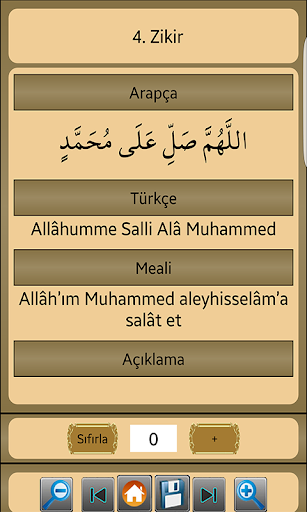 4. Zikir
Arapça
اللَّهُمَّ صَلِّ عَلَى مُحَمَّدٍ
Türkçe
Allâhumme Salli Alâ Muhammed
Meali
Allâh'ım Muhammed aleyhisselâm'a
salât et
Açıklama
Sıfırla 0 +